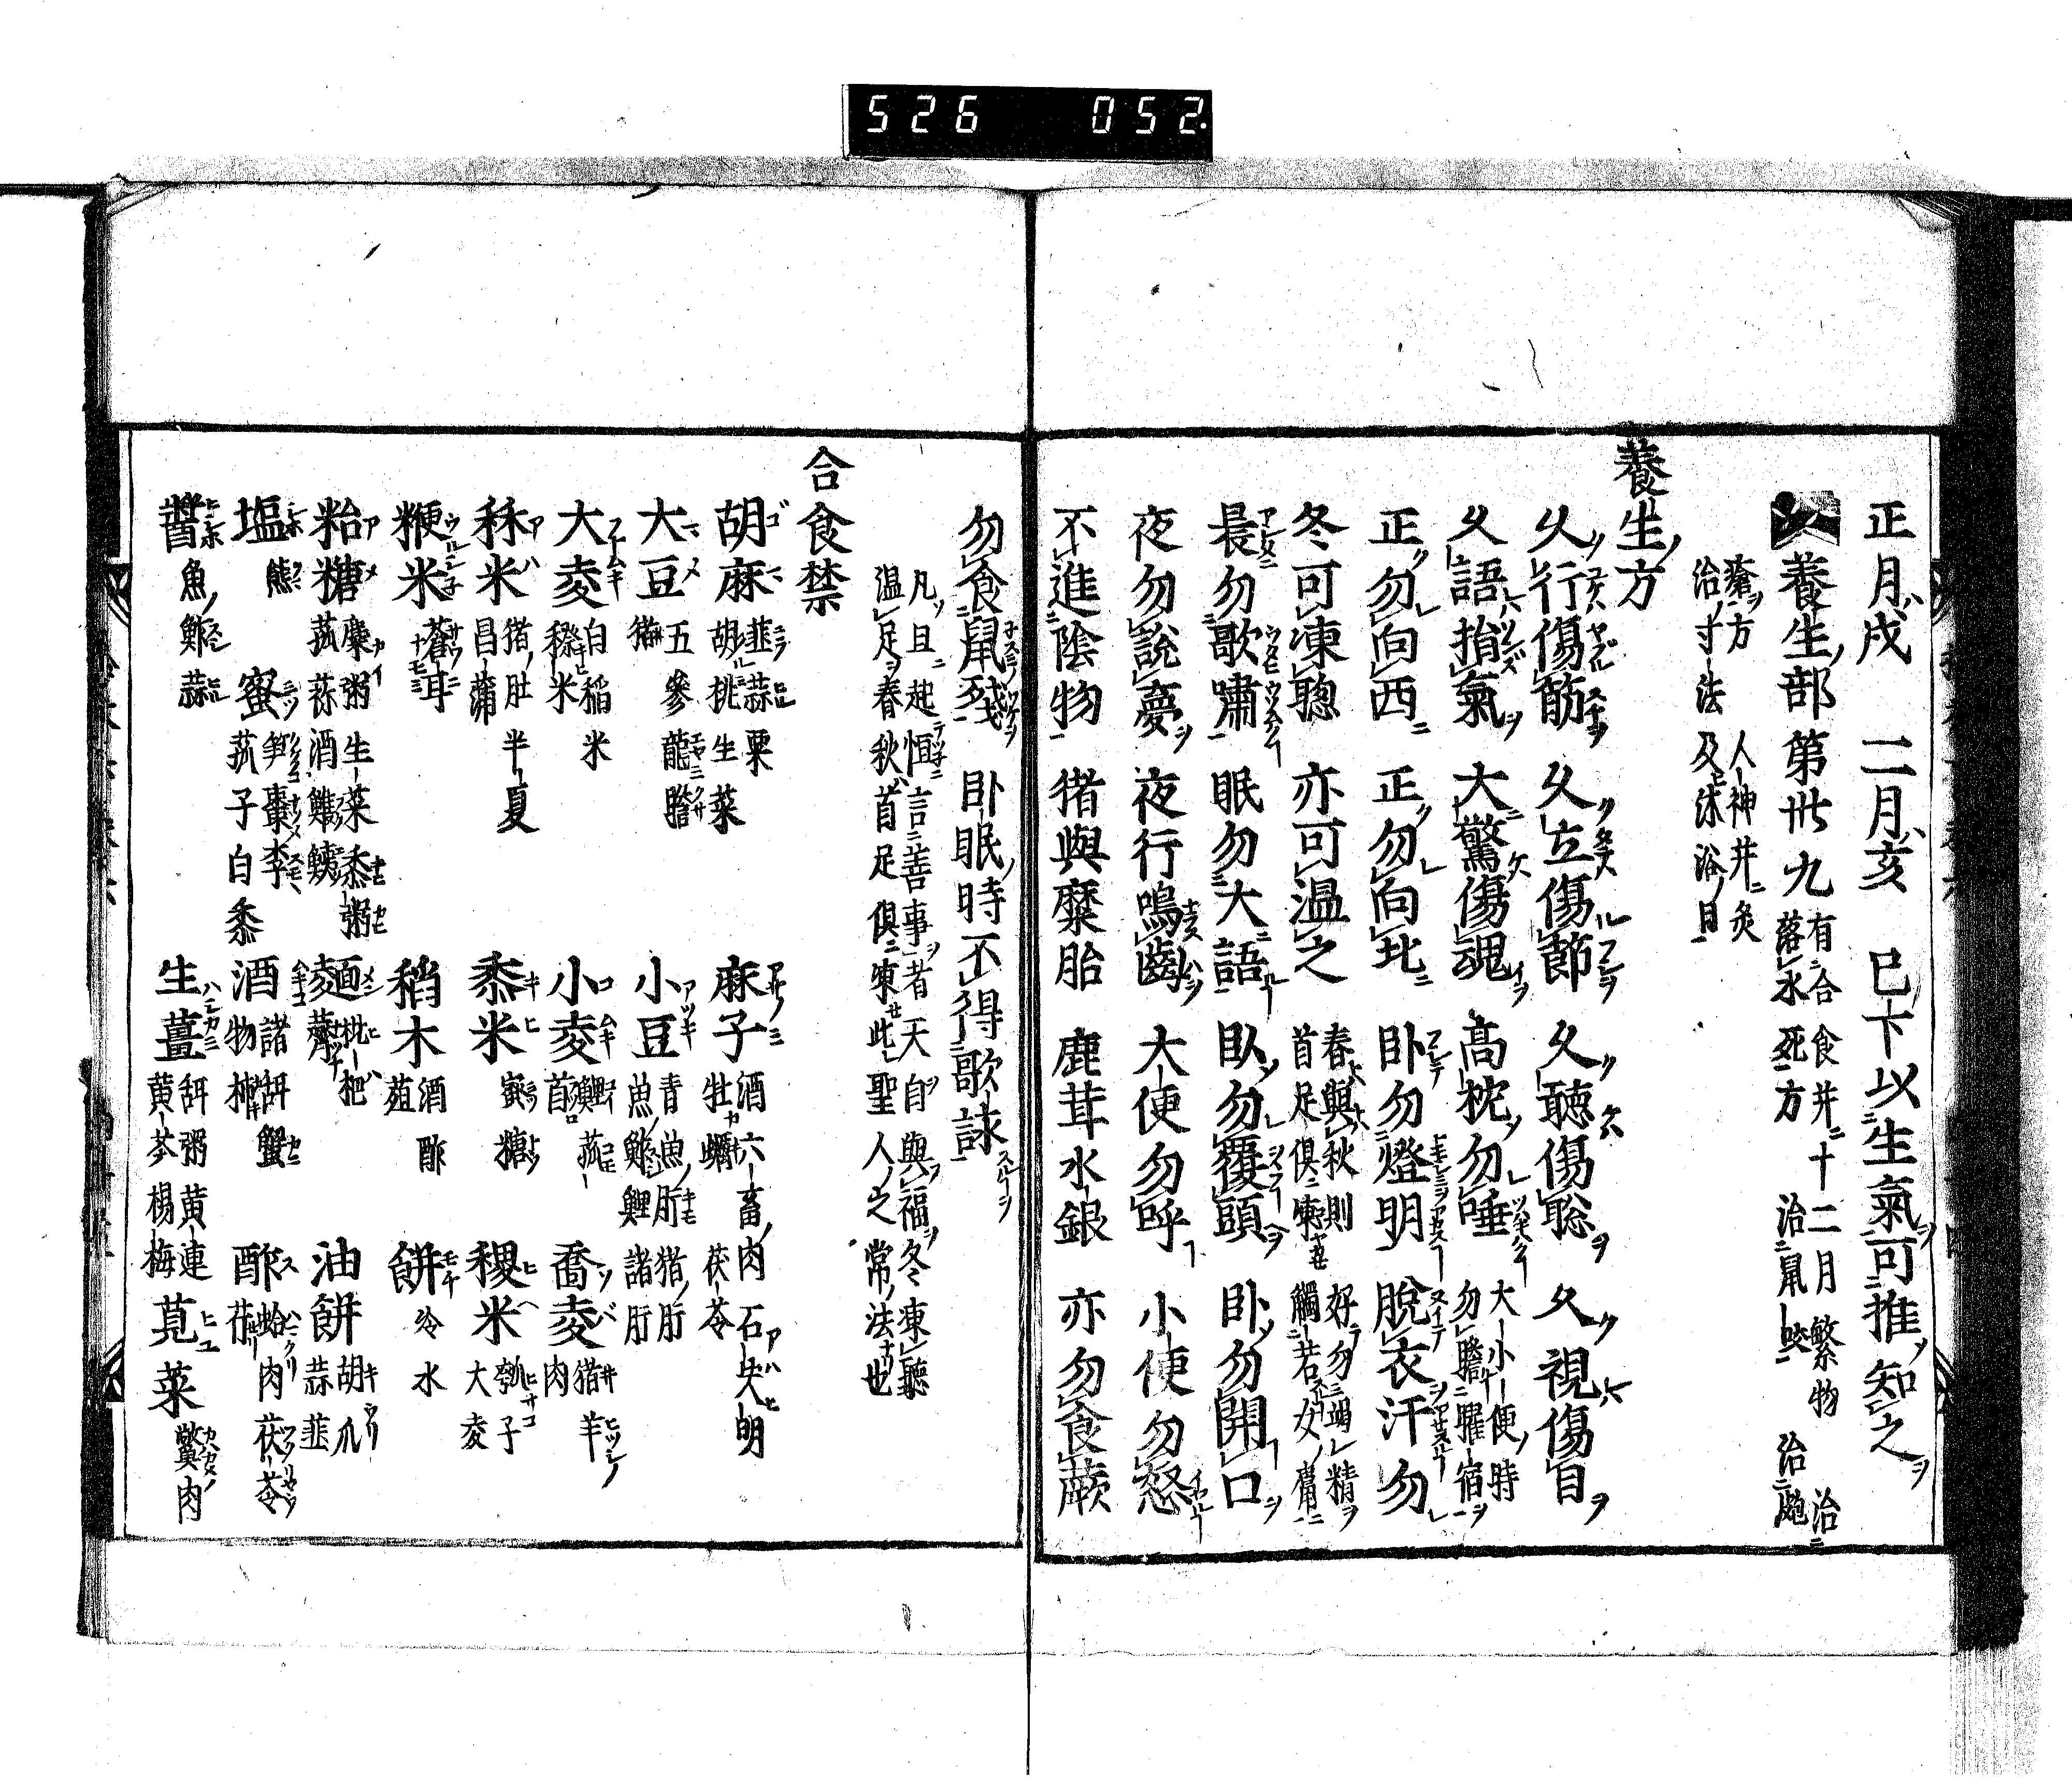 526 052
正月戌 二月亥 巳下以生氣可推知之
養生部第卅九 有合食并十二月繁物 治
落水死方 治鼠咬 治
瘡方 人神并灸
治寸法 及沐浴日
養生方
久行傷筋 久立傷節 久聽傷聡 久視傷目
久語損氣 大驚傷魂 高枕勿唾 大小便時
勿瞻曜宿
正勿向西 正勿向北 卧勿燈明 脱衣汗勿
冬可凍聰 亦可温之 春與秋則
首足倶 好勿竭精
觸若女
晨勿歌嘯 眠勿大語 臥勿覆頭 卧勿開口
夜勿説夢 夜行鳴齒 大便勿呼 小便勿怒
不進陰物 猪與糜胎 鹿茸水銀 亦勿食蕨
勿食鼠殘 卧眠時不得歌詠
凡旦起恒言善事者天自與福冬凍聽
温足春秋首足倶凍此聖人之常法也
合食禁
胡麻 韮蒜粟
胡桃生菜 麻子 酒六畜肉石決明
牡蠣 茯苓
大豆 五參龍膽
猪 小豆 青魚肝猪肝
魚鮓鯉諸肝
大麦 白稲米
米 小麦 鯉菰
首 喬麦 猪羊
肉
秫米 猪肚半夏
昌蒲 黍米 蜜糖 稷米 瓠子
大麦
粳米 蒼耳 稻木 酒酢 餅 冷水
粭糖 麋粥生菜黍粥
菰蒜酒 麺 枇杷 油餅 胡瓜
蒜韮
塩 熊 蜜 笋棗李
菰子白黍 酒 諸甜蟹
物柿 酢 蛤肉茯苓
醤 魚鮓蒜 生薑 甜粥黄連
黄芩楊梅 莧菜 鼈肉